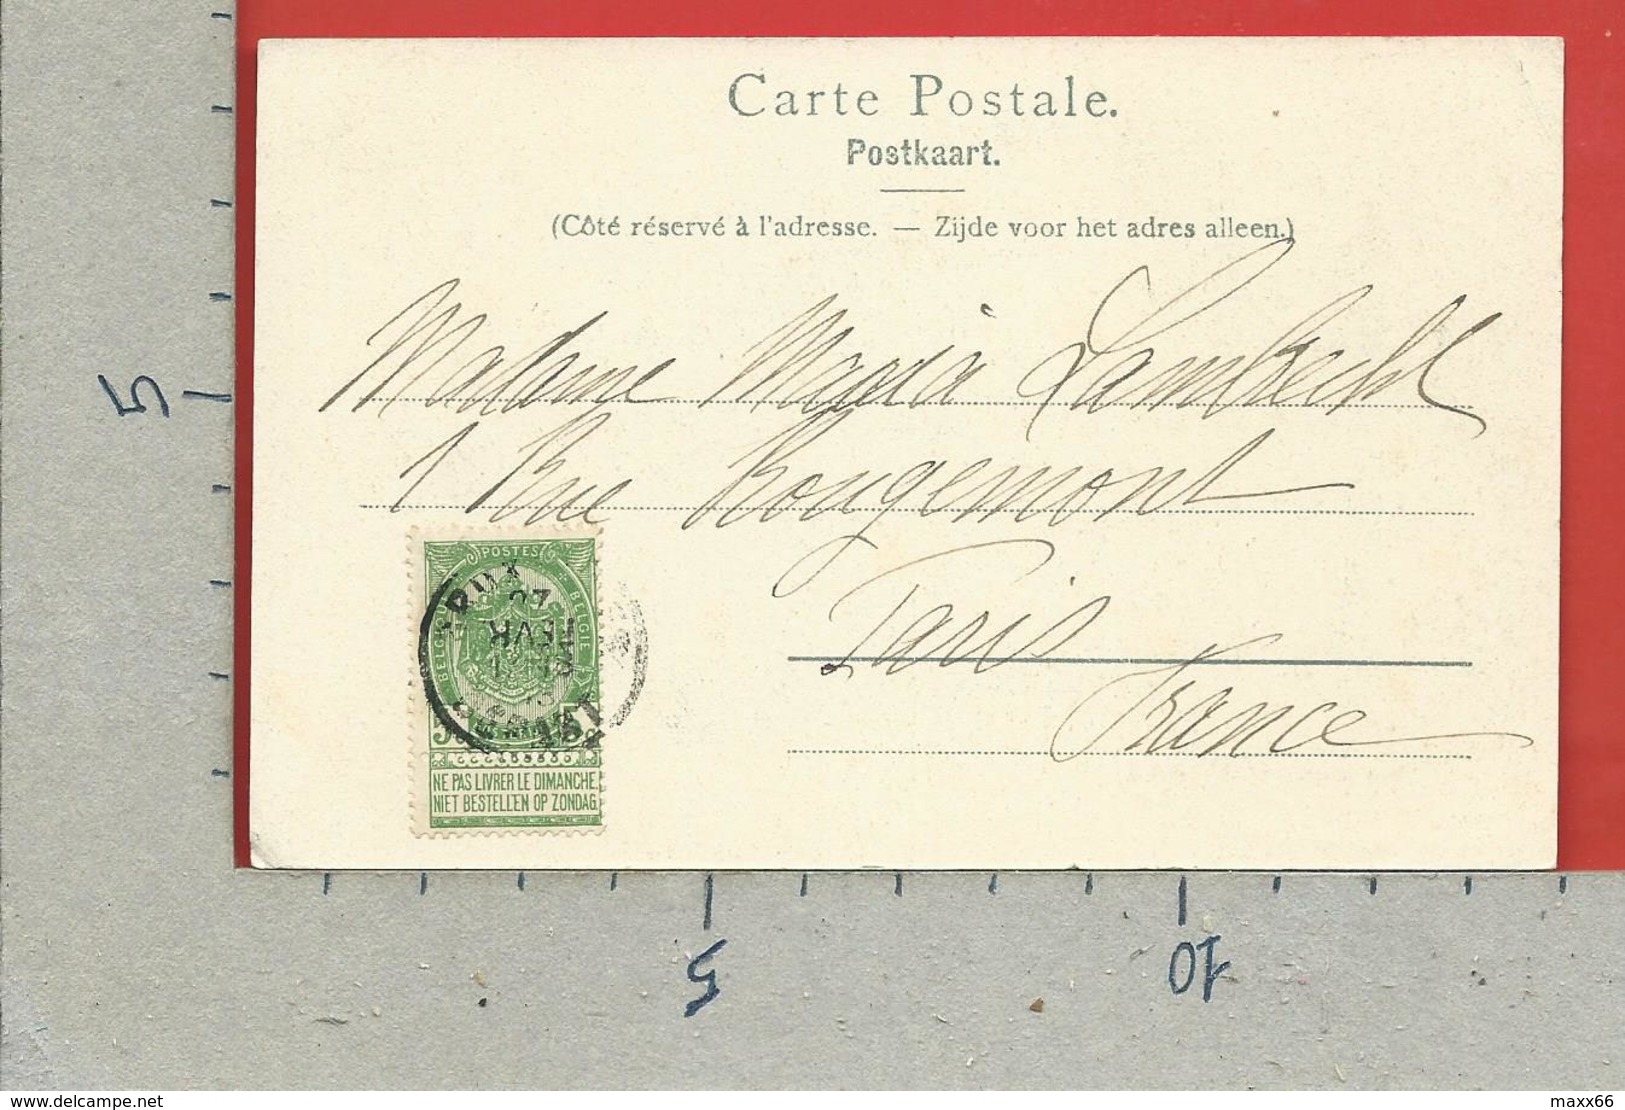 Carte Postale.
Postkaart.
(Côté réservé à l'adresse. — Zijde voor het adres alleen.)
Madame Maria Lambrecht
1 Rue Rougemont
Paris
France
POSTES
BELGIQUE BELGIË
NE PAS LIVRER LE DIMANCHE
NIET BESTELLEN OP ZONDAG
5
5
10
www.delcampe.net
maxx66